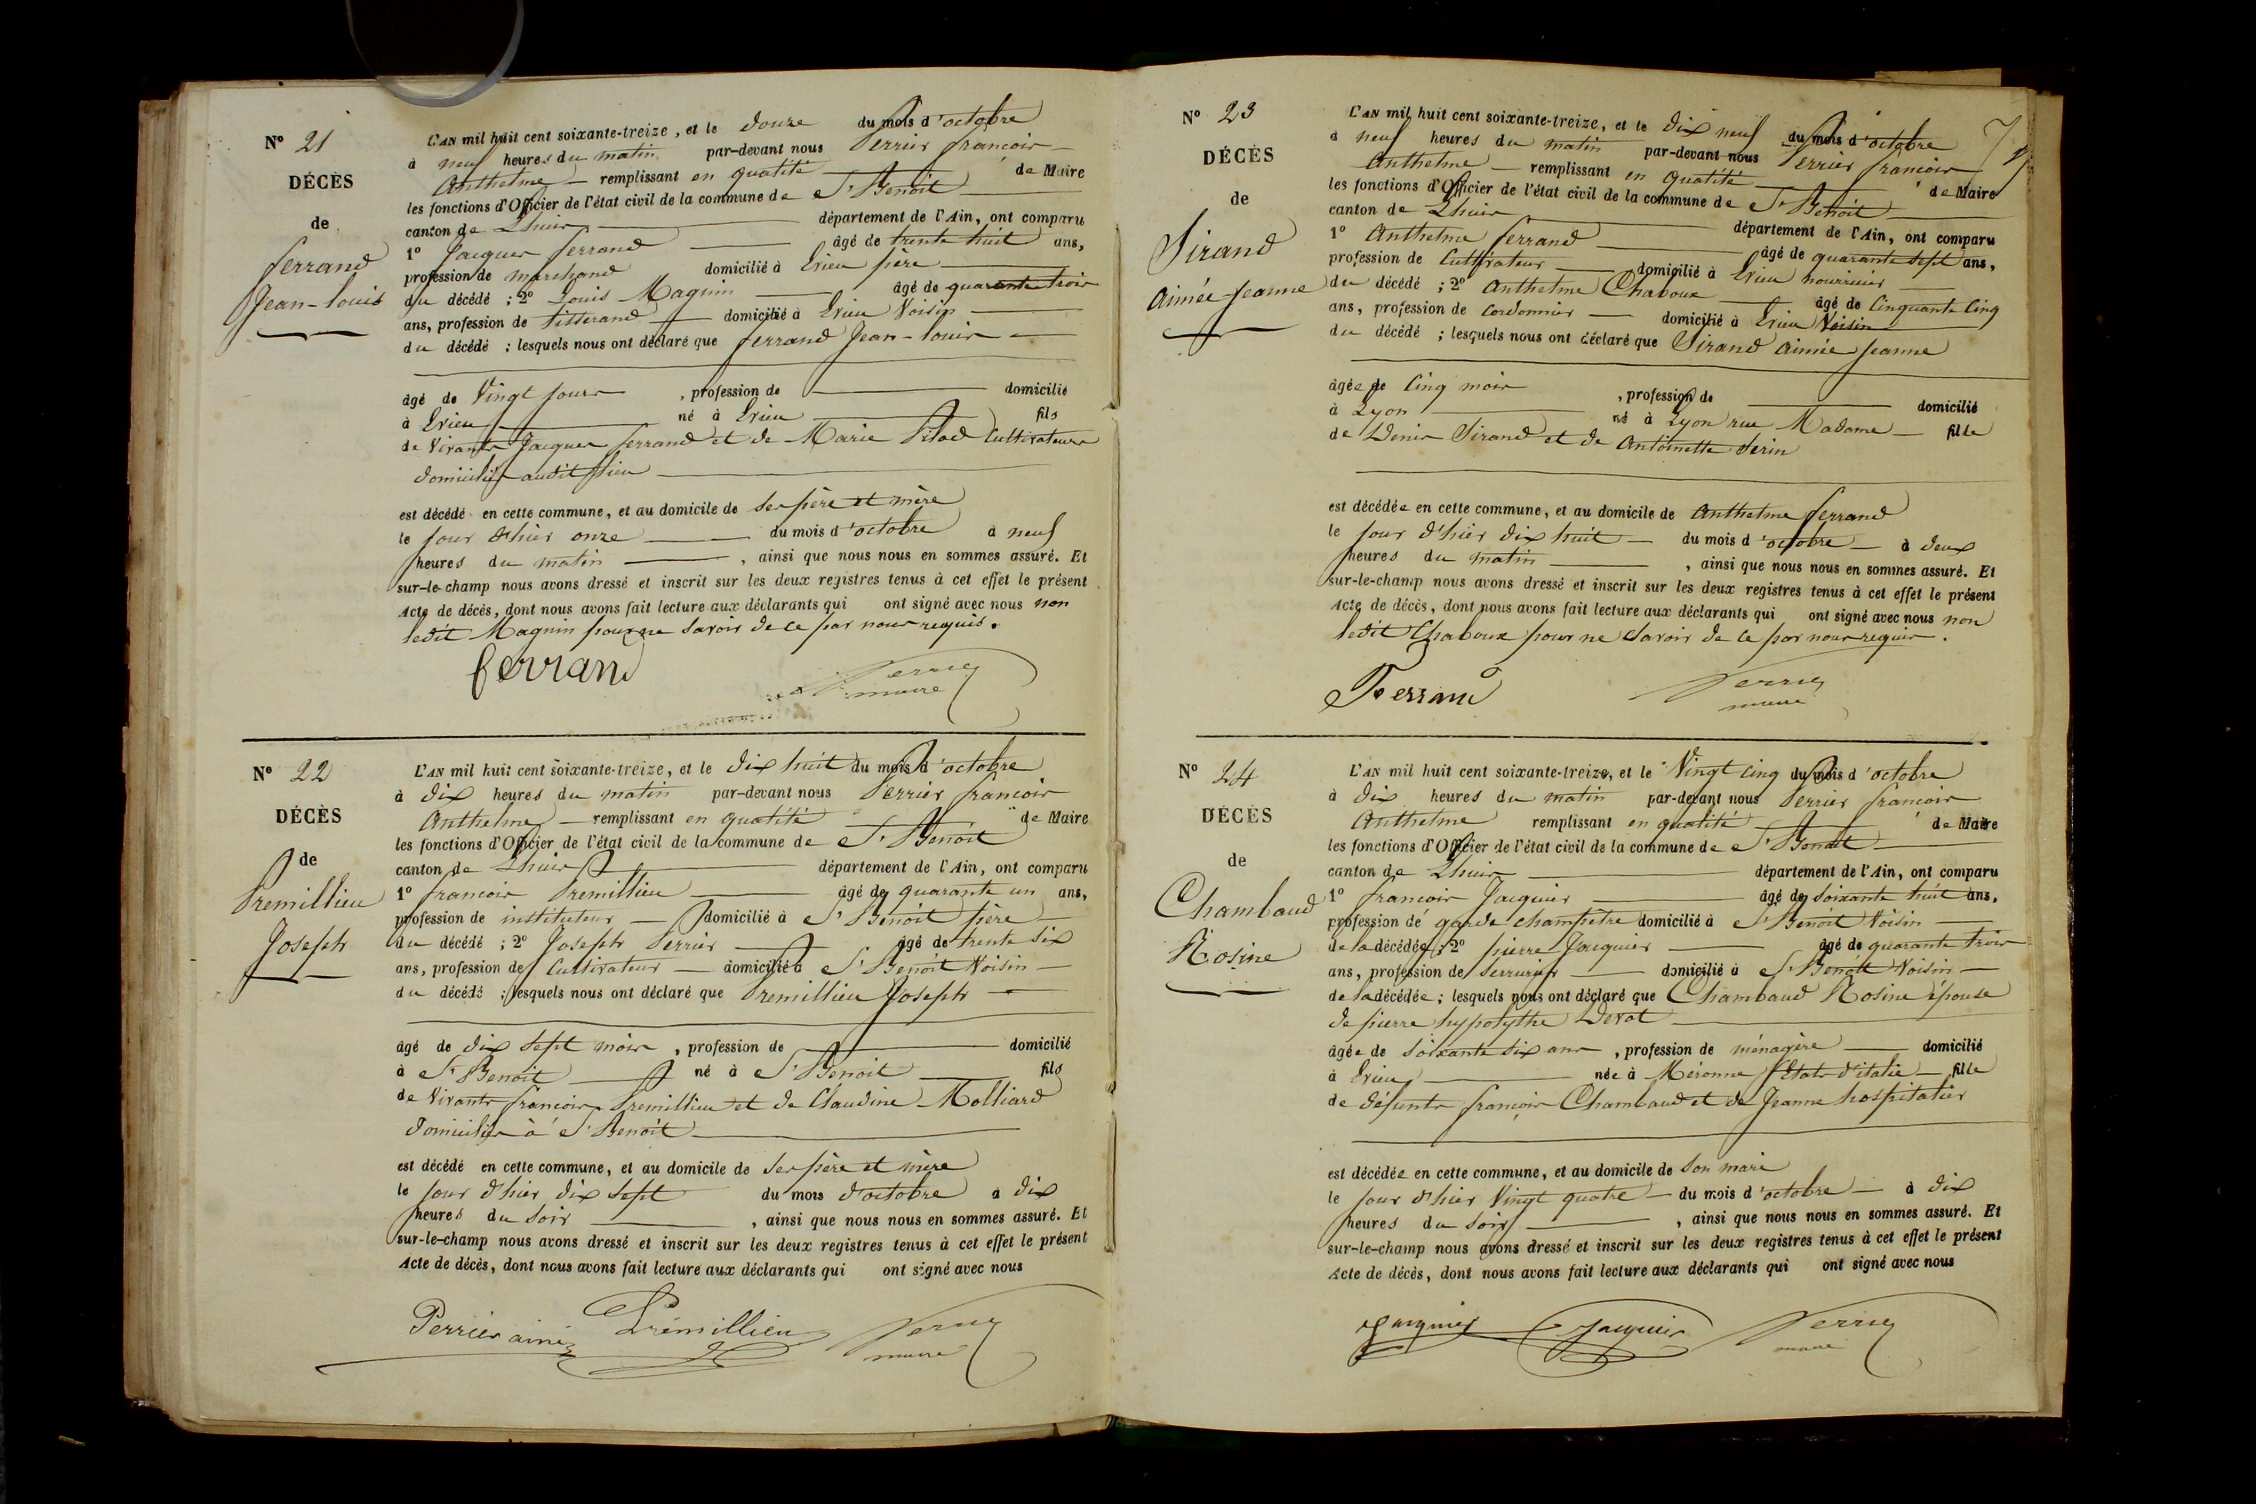 N° 21
DÉCÈS
de
ferrand
Jean-louis
L'AN mil huit cent soixante-treize, et le douze du mois d'octobre
à neuf heures du matin par-devant nous Perrier francois
Anthelme remplissant en qualité de Maire
les fonctions d'Officier de l'état civil de la commune de St Benoit
canton de Lhuis département de l'Ain, ont comparu
1° Jacques ferrand âgé de trente huit ans,
profession de marchand domicilié à Evieu père
du décédé ; 2° Louis Magnin âgé de quarante trois
ans, profession de tisserand domicilié à Evieu Voisin
du décédé ; lesquels nous ont déclaré que ferrand Jean-louis
âgé de Vingt jours , profession de domicilié
à Evieu né à Evieu fils
de Vivants Jacques ferrand et de Marie Pilod Cultivateurs
domiciliés audit lieu
est décédé en cette commune, et au domicile de ses père et mère
le jour d'hier onze du mois d'octobre à neuf
heures du matin , ainsi que nous nous en sommes assuré. Et
sur-le-champ nous avons dressé et inscrit sur les deux registres tenus à cet effet le présent
Acte de décès, dont nous avons fait lecture aux déclarants qui ont signé avec nous non
ledit Magnin pour ne savoir de ce par nous requis.
ferrand Perrier
maire
N° 22
DÉCÈS
de
Premillieu
Joseph
L'AN mil huit cent soixante-treize, et le dix huit du mois d'octobre
à dix heures du matin par-devant nous Perrier francois
Anthelme remplissant en qualité de Maire
les fonctions d'Officier de l'état civil de la commune de St Benoit
canton de Lhuis département de l'Ain, ont comparu
1° francois Premillieu âgé de quarante un ans,
profession de instituteur domicilié à St Benoit père
du décédé ; 2° Joseph Perrier âgé de trente six
ans, profession de Cultivateur domicilié à St Benoit Voisin
du décédé ; lesquels nous ont déclaré que Premillieu Joseph
âgé de dix sept mois , profession de domicilié
à St Benoit né à St Benoit fils
de Vivants francois Premillieu et de Claudine Molliard
domiciliés à St Benoit
est décédé en cette commune, et au domicile de ses père et mère
le jour d'hier dix sept du mois d'octobre à dix
heures du soir , ainsi que nous nous en sommes assuré. Et
sur-le-champ nous avons dressé et inscrit sur les deux registres tenus à cet effet le présent
Acte de décès, dont nous avons fait lecture aux déclarants qui ont signé avec nous
Perrier ainé Prémillieu Perrier
maire
N° 23
DÉCÈS
de
Sirand
Aimée Jeanne
L'AN mil huit cent soixante-treize, et le dix neuf du mois d'octobre
à neuf heures du matin par-devant nous Perrier francois
Anthelme remplissant en qualité de Maire
les fonctions d'Officier de l'état civil de la commune de St Benoit
canton de Lhuis département de l'Ain, ont comparu
1° Anthelme ferrand âgé de quarante sept ans,
profession de Cultivateur domicilié à Evieu nourricier
du décédé ; 2° Anthelme Chaboux âgé de Cinquante Cinq
ans, profession de Cordonnier domicilié à Evieu Voisin
du décédé ; lesquels nous ont déclaré que Sirand Aimée Jeanne
âgée de Cinq mois , profession de domicilié
à Lyon né à Lyon rue Madame fille
de Denis Sirand et de Antoinette Serin
est décédée en cette commune, et au domicile de Anthelme ferrand
le jour d'hier dix huit du mois d'octobre à deux
heures du matin , ainsi que nous nous en sommes assuré. Et
sur-le-champ nous avons dressé et inscrit sur les deux registres tenus à cet effet le présent
Acte de décès, dont nous avons fait lecture aux déclarants qui ont signé avec nous non
ledit Chaboux pour ne savoir de ce par nous requis.
Ferrand Perrier
maire
N° 24
DÉCÈS
de
Chambaud
Rosine
L'AN mil huit cent soixante-treize, et le Vingt cinq du mois d'octobre
à dix heures du matin par-devant nous Perrier francois
Anthelme remplissant en qualité de Maire
les fonctions d'Officier de l'état civil de la commune de St Benoit
canton de Lhuis département de l'Ain, ont comparu
1° francois Jacquier âgé de soixante huit ans,
profession de garde champêtre domicilié à St Benoit Voisin
de la décédée ; 2° pierre Jacquier âgé de quarante trois
ans, profession de serrurier domicilié à St Benoit Voisin
de la décédée ; lesquels nous ont déclaré que Chambaud Rosine épouse
de pierre hypolythe Devot
âgée de soixante six ans , profession de ménagère domicilié
à Evieu née à Méronne Etats d'italie fille
de défunts françois Chambaud et de Jeanne hospitalier
est décédée en cette commune, et au domicile de son mari
le jour d'hier Vingt quatre du mois d'octobre à dix
heures du soir , ainsi que nous nous en sommes assuré. Et
sur-le-champ nous avons dressé et inscrit sur les deux registres tenus à cet effet le présent
Acte de décès, dont nous avons fait lecture aux déclarants qui ont signé avec nous
Jacquier Jacquier Perrier
maire